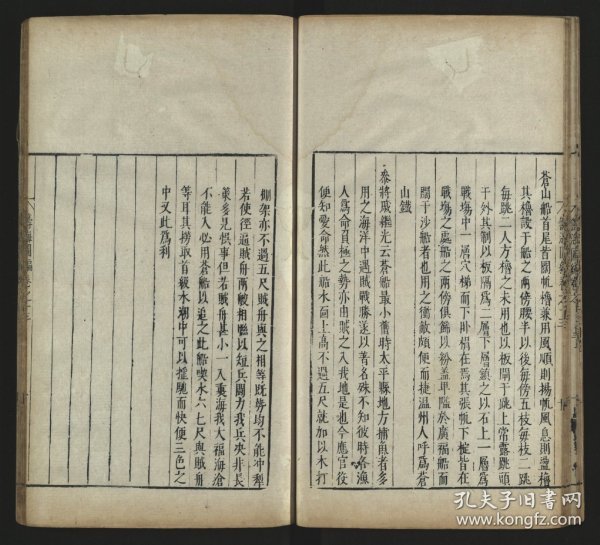 蒼山船首尾皆闊帆櫓兼用風順則揚帆風息則盪櫓
其櫓設于船之兩傍腰半以後每傍五枝每枝二跳
每跳二人方櫓之未用也以板閘于跳上常露跳頭
于外其制以板隔爲二層下層鎮之以石上一層爲
戰場中一層穴梯而下卧榻在焉其張帆下椗皆在
戰場之處船之兩傍俱飾以粉盖卑隘於廣福船而
闊于沙船者也用之衝敵頗便而捷溫州人呼爲蒼
山鐵
叅將戚繼光云蒼船最小舊時太平縣地方捕魚者多
用之海洋中遇賊戰勝遂以著名殊不知彼時各漁
人爲命負極之勢亦由賊之入我地是也今應官役
便知愛命然此船水面上高不過五尺就加以木打
棚架亦不過五尺賊舟與之相等既勢均不能冲犁
若使徑逼賊舟兩艘相聮以短兵鬪力我兵決非長
䇿多見悞事但若賊舟甚小一入裏海我大福海倉
不能入必用蒼船以追之此船喫水六七尺與賊舟
等耳其撈取首級水潮中可以搖馳而快便三色之
中又此爲利
孔夫子旧書网
www.kongfz.com